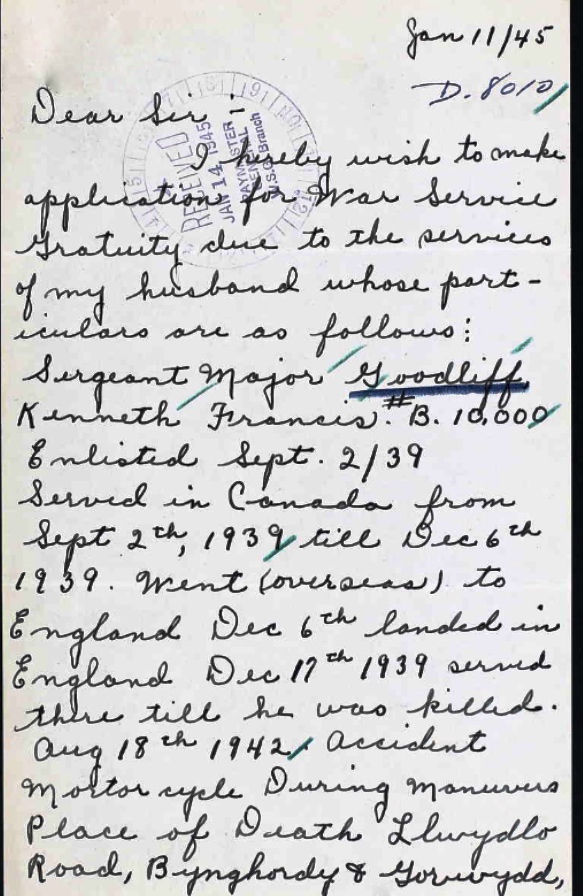 Jan 11/45
D. 8010
Dear Sir :-
I hereby wish to make
application for War Service
Gratuity due to the services
of my husband whose part-
iculars are as follows:
Sergeant Major Goodliff
Kenneth Francis. # B. 10,000
Enlisted Sept. 2/39
Served in Canada from
Sept 2th, 1939 till Dec 6th
1939. Went (overseas) to
England Dec 6th landed in
England Dec 17th 1939 served
there till he was killed.
Aug 18th 1942. Accident
Mortor cycle During Manuvers
Place of Death Llwydlo
Road, Bynghordy & Gorwydd,
RECEIVED
JAN 14 1945
PAYMASTER
GENERAL
W.S.G. Branch